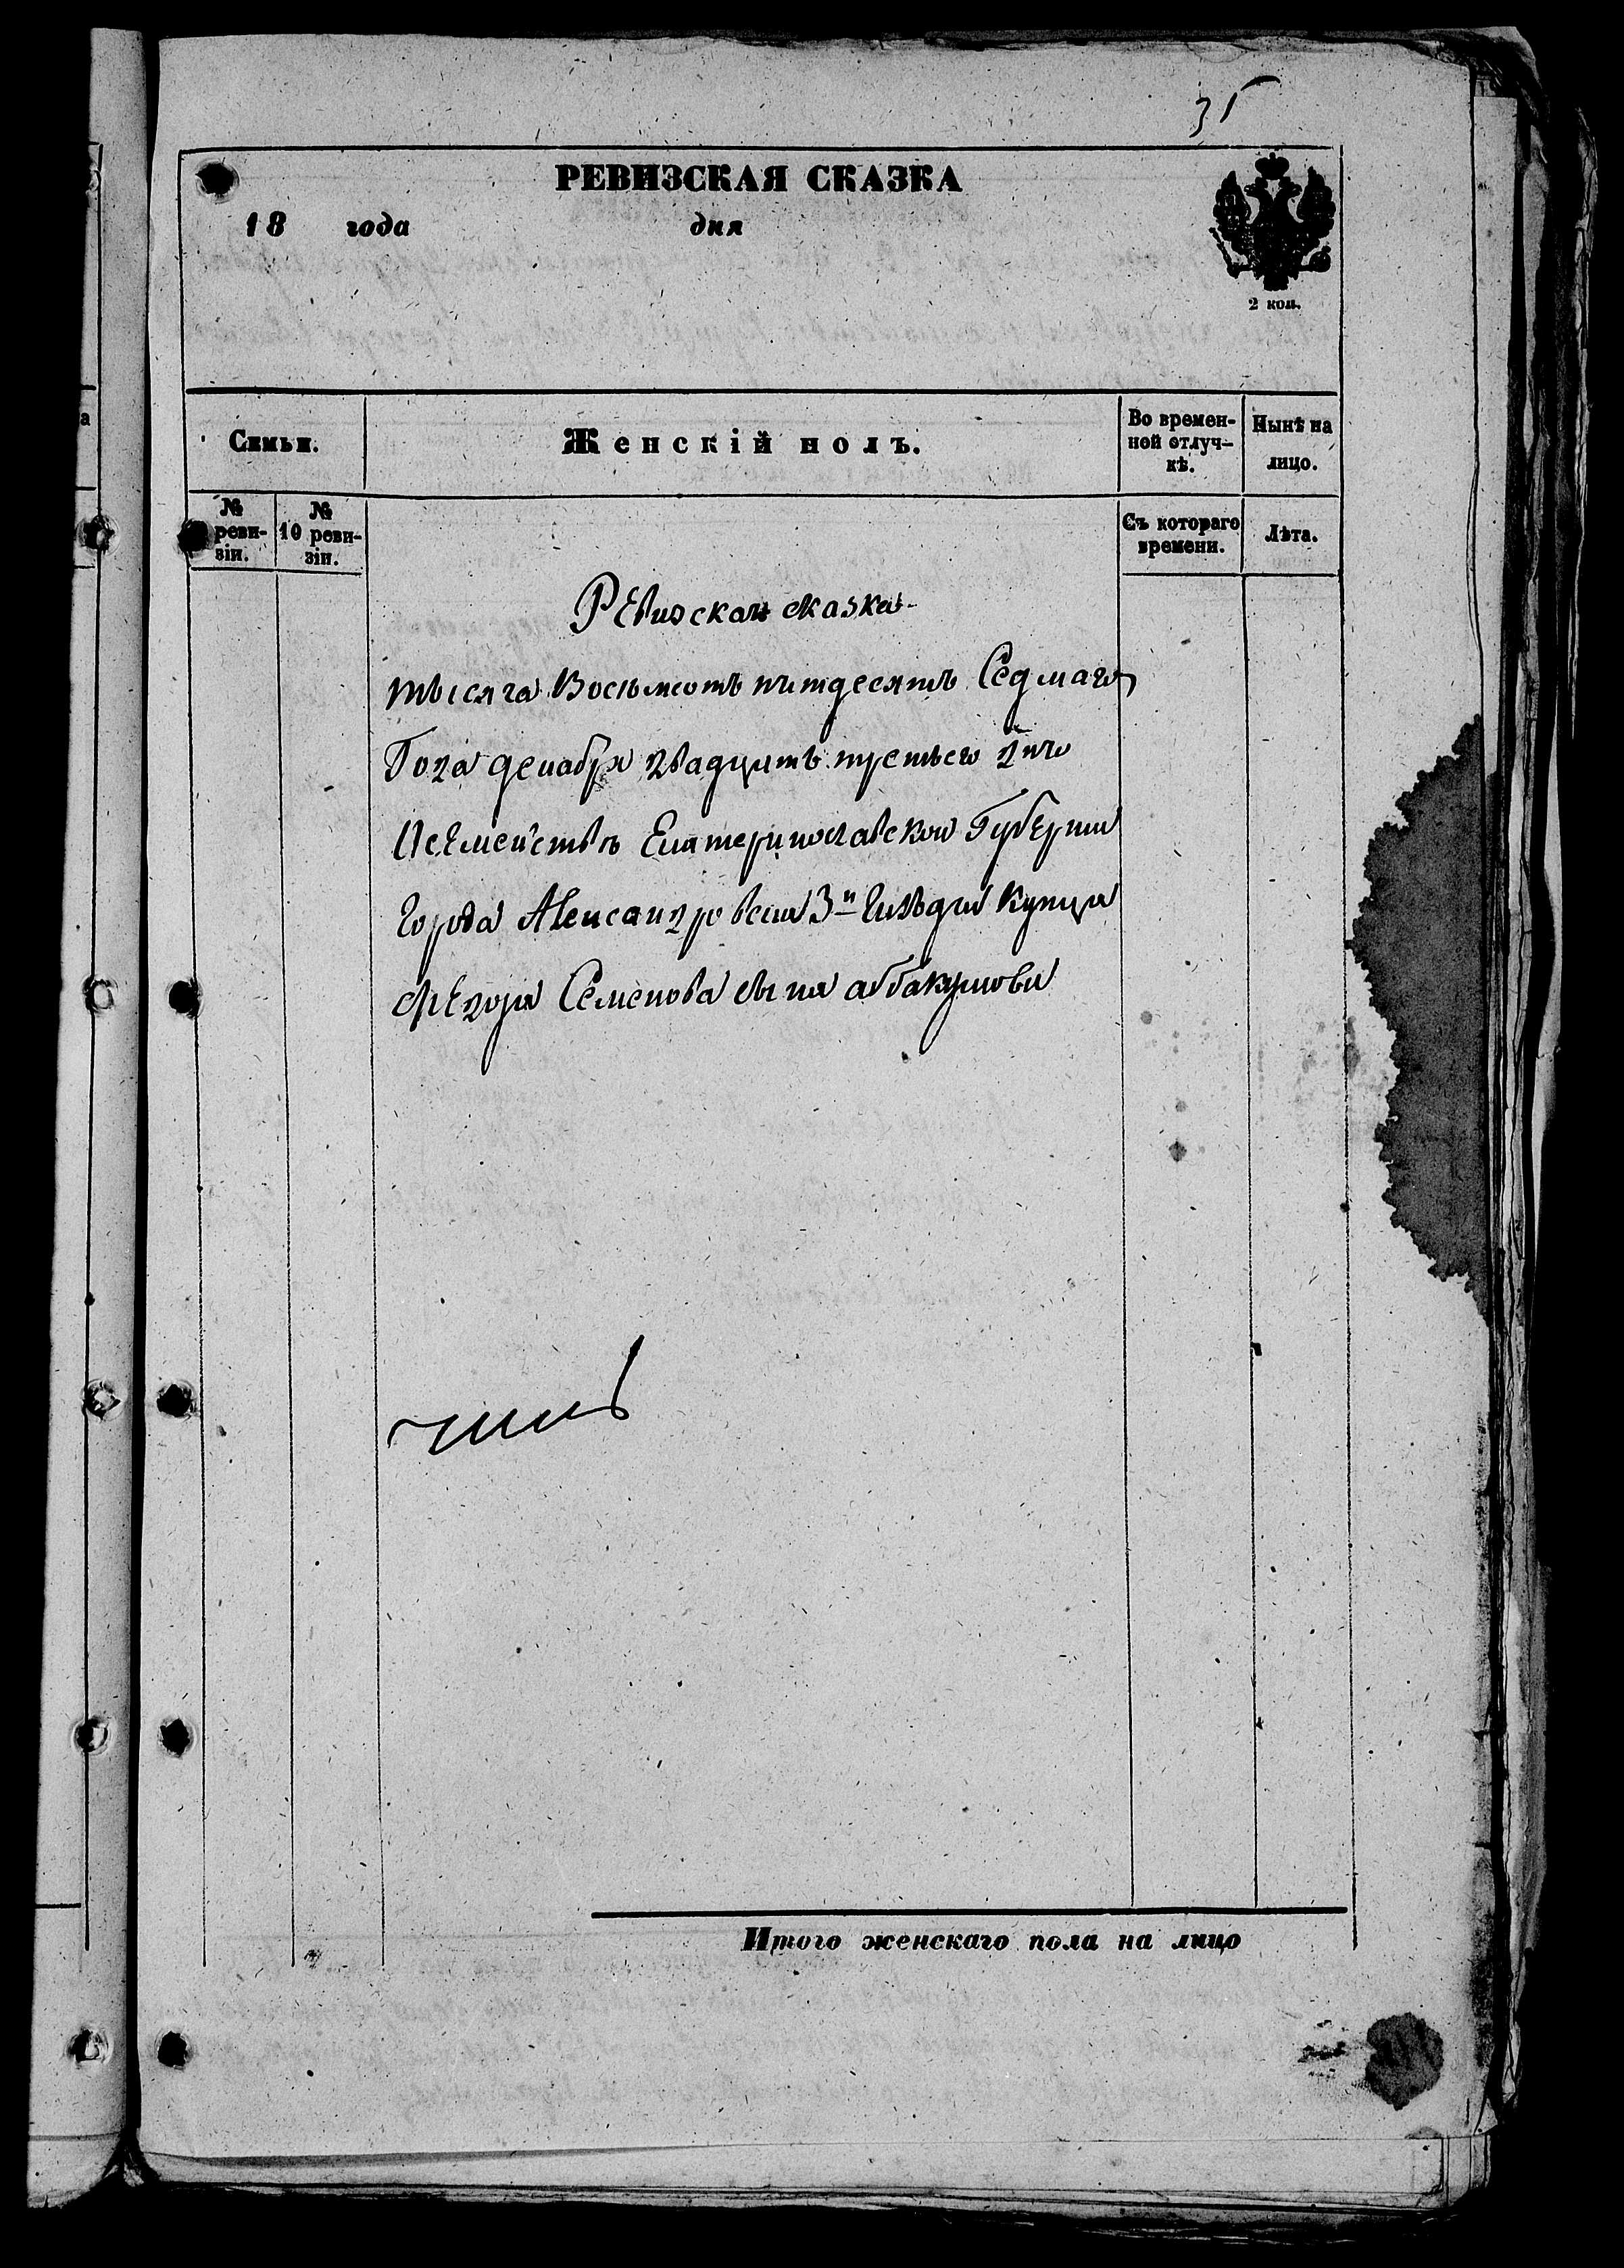 35
РЕВИЗСКАЯ СКАЗКА
18 года дня
2 коп.
Семьи. Женскій полъ. Во времен-ной отлуч-кѣ. Нынѣ на лицо.
№ реви-зіи. № 10 реви-зіи. Съ котораго времени. Лѣта.
Ревизская сказка
тысяча Восьмсотъ пятдесятъ Седмаго
Года декабря двадцать третьего дня
Екатеринославской Губернии
города Александровска 3й Гильдии Купца
Федора Семенова сына аббакумова
Итого женскаго пола на лицо